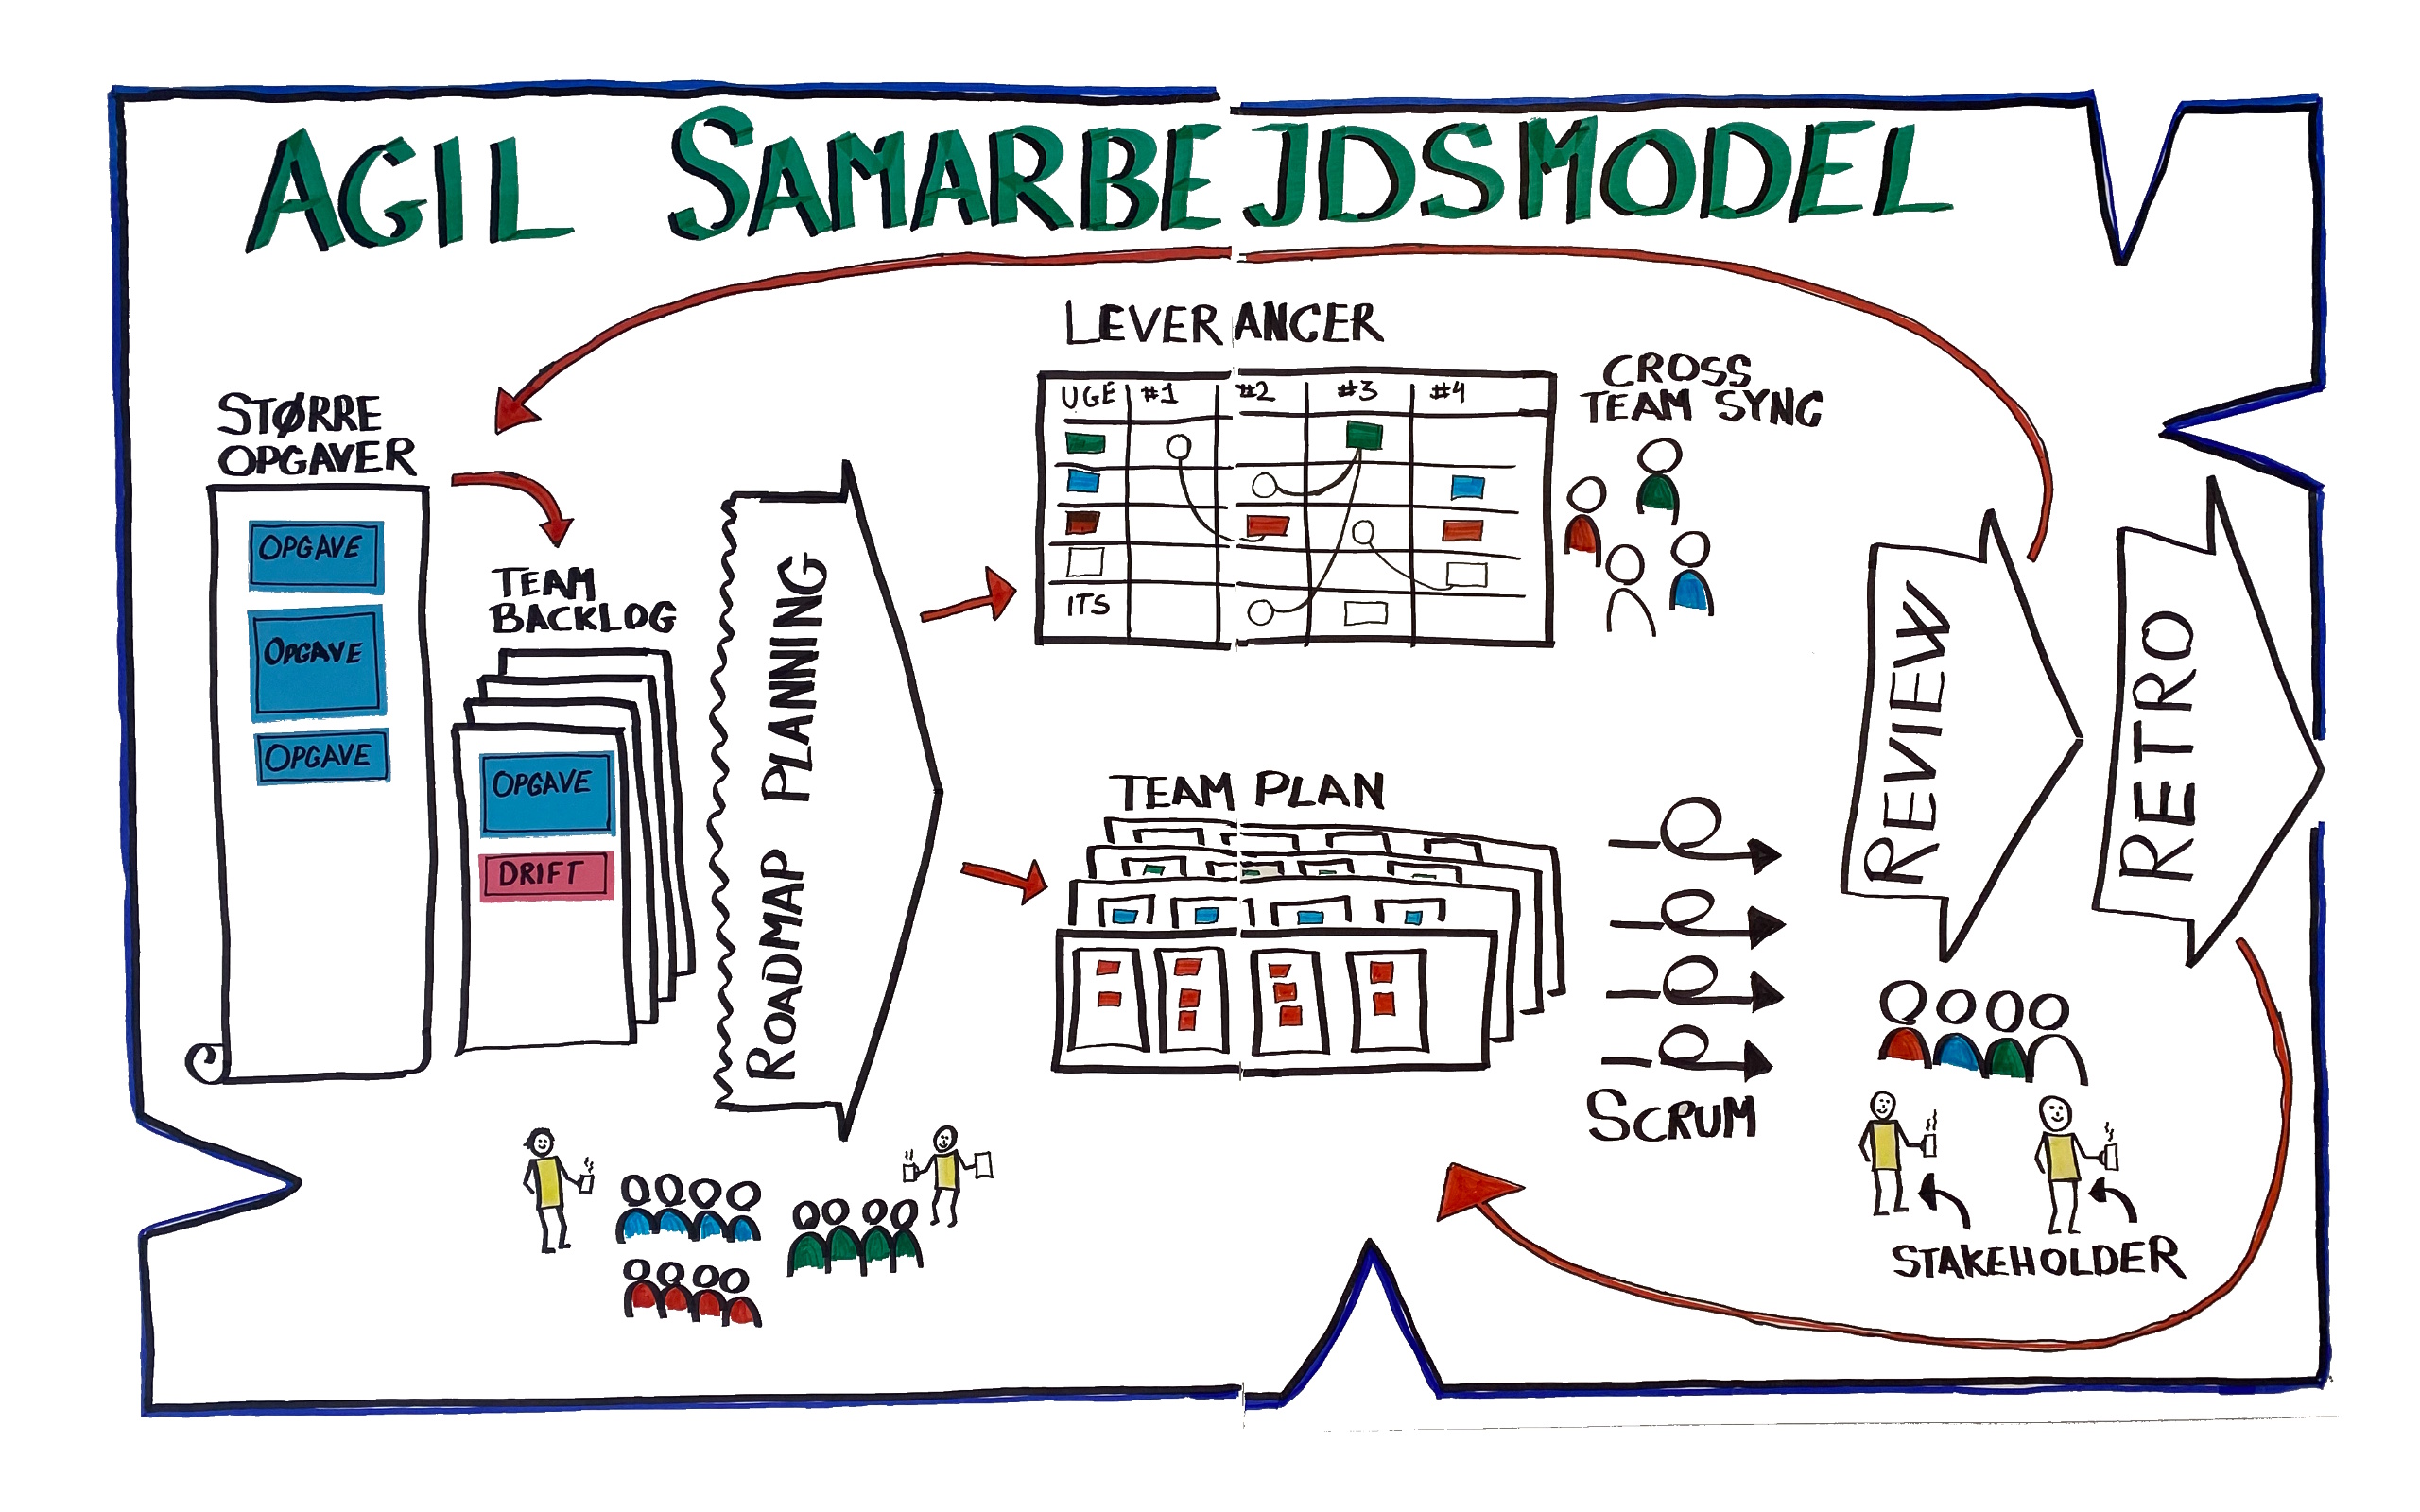 AGIL SAMARBEJDSMODEL
STØRRE
OPGAVER
OPGAVE
OPGAVE
OPGAVE
TEAM
BACKLOG
OPGAVE
DRIFT
ROADMAP PLANNING
LEVERANCER
UGE #1 #2 #3 #4
ITS
CROSS
TEAM SYNC
TEAM PLAN
SCRUM
REVIEW
RETRO
STAKEHOLDER